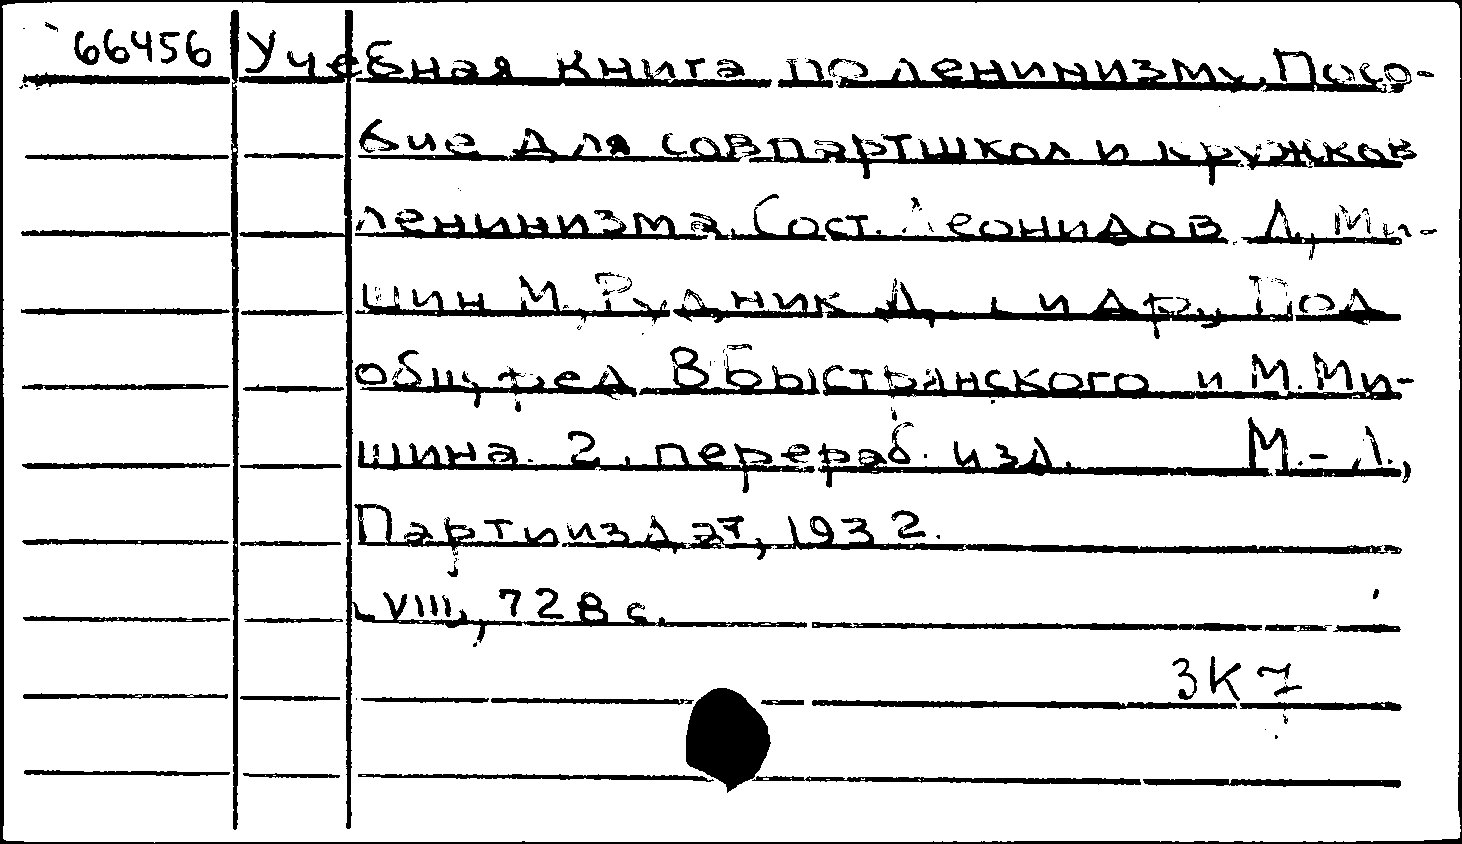 66456 Учебная книга по ленинизму. Посо-
бие для совпартшкол и кружков
ленинизма. Сост. Леонидов Л., Ми-
шин М., Рудник Д. и др., Под
общ. ред В Быстрянского и М. Ми-
шина. 2. перераб. изд. М.-Л.,
Партиздат, 1932.
VIII, 728 с.
3К7